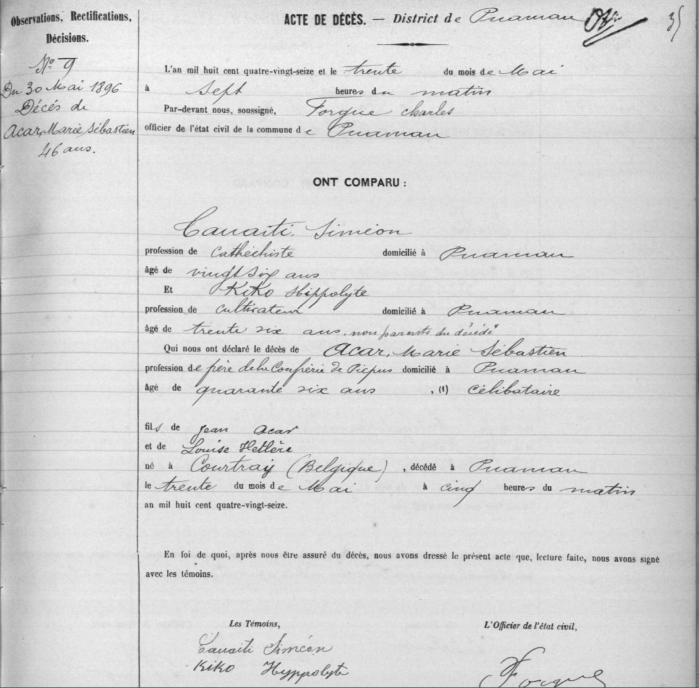 Observations, Rectifications,
Décisions.
N° 9
Du 30 Mai 1896
Décès de
Acar, Marie Sébastien
46 ans.
ACTE DE DÉCÈS. — District de Puamau
35
L'an mil huit cent quatre-vingt-seize et le trente du mois de Mai
à sept heures du matin
Par-devant nous, soussigné, Forgue Charles
officier de l'état civil de la commune de Puamau
ONT COMPARU :
Tauaiti Siméon
profession de Cathéchiste domicilié à Puamau
âgé de vingt six ans
Et Kiko Hippolyte
profession de cultivateur domicilié à Puamau
âgé de trente six ans, non parents du décédé
Qui nous ont déclaré le décès de Acar, Marie Sébastien
profession de frère de la Confrérie de Picpus domicilié à Puamau
âgé de quarante six ans , (1) Célibataire
fils de Jean Acar
et de Louise Hellère
né à Courtray (Belgique) , décédé à Puamau
le trente du mois de Mai à cinq heures du matin
an mil huit cent quatre-vingt-seize.
En foi de quoi, après nous être assuré du décès, nous avons dressé le présent acte que, lecture faite, nous avons signé
avec les témoins.
Les Témoins, L'Officier de l'état civil,
Tauaiti Siméon
Kiko Hyppolyte
Forgue